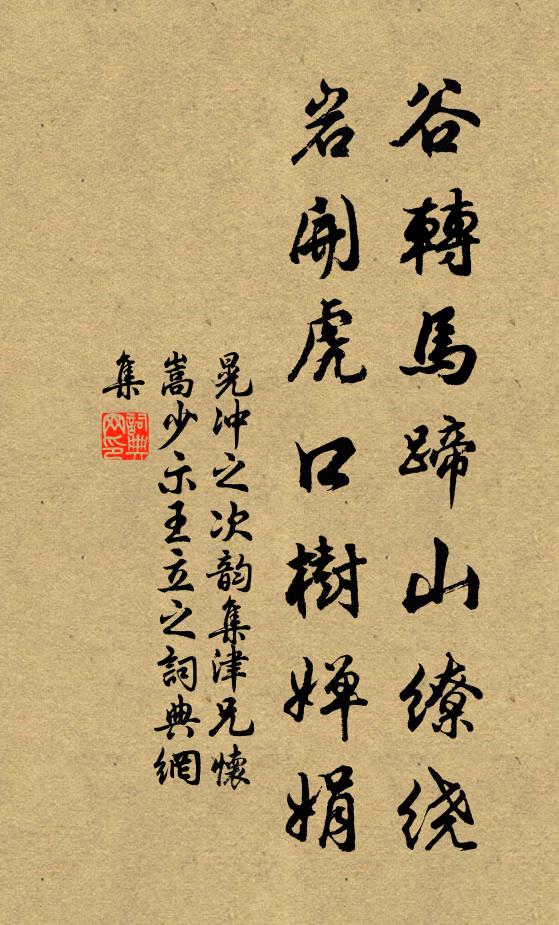 谷轉馬蹄山缭绕
岩開虎口樹婵娟
晁冲之次韵集津兄懷
嵩少示王立之詞典網
集
詞典
网印